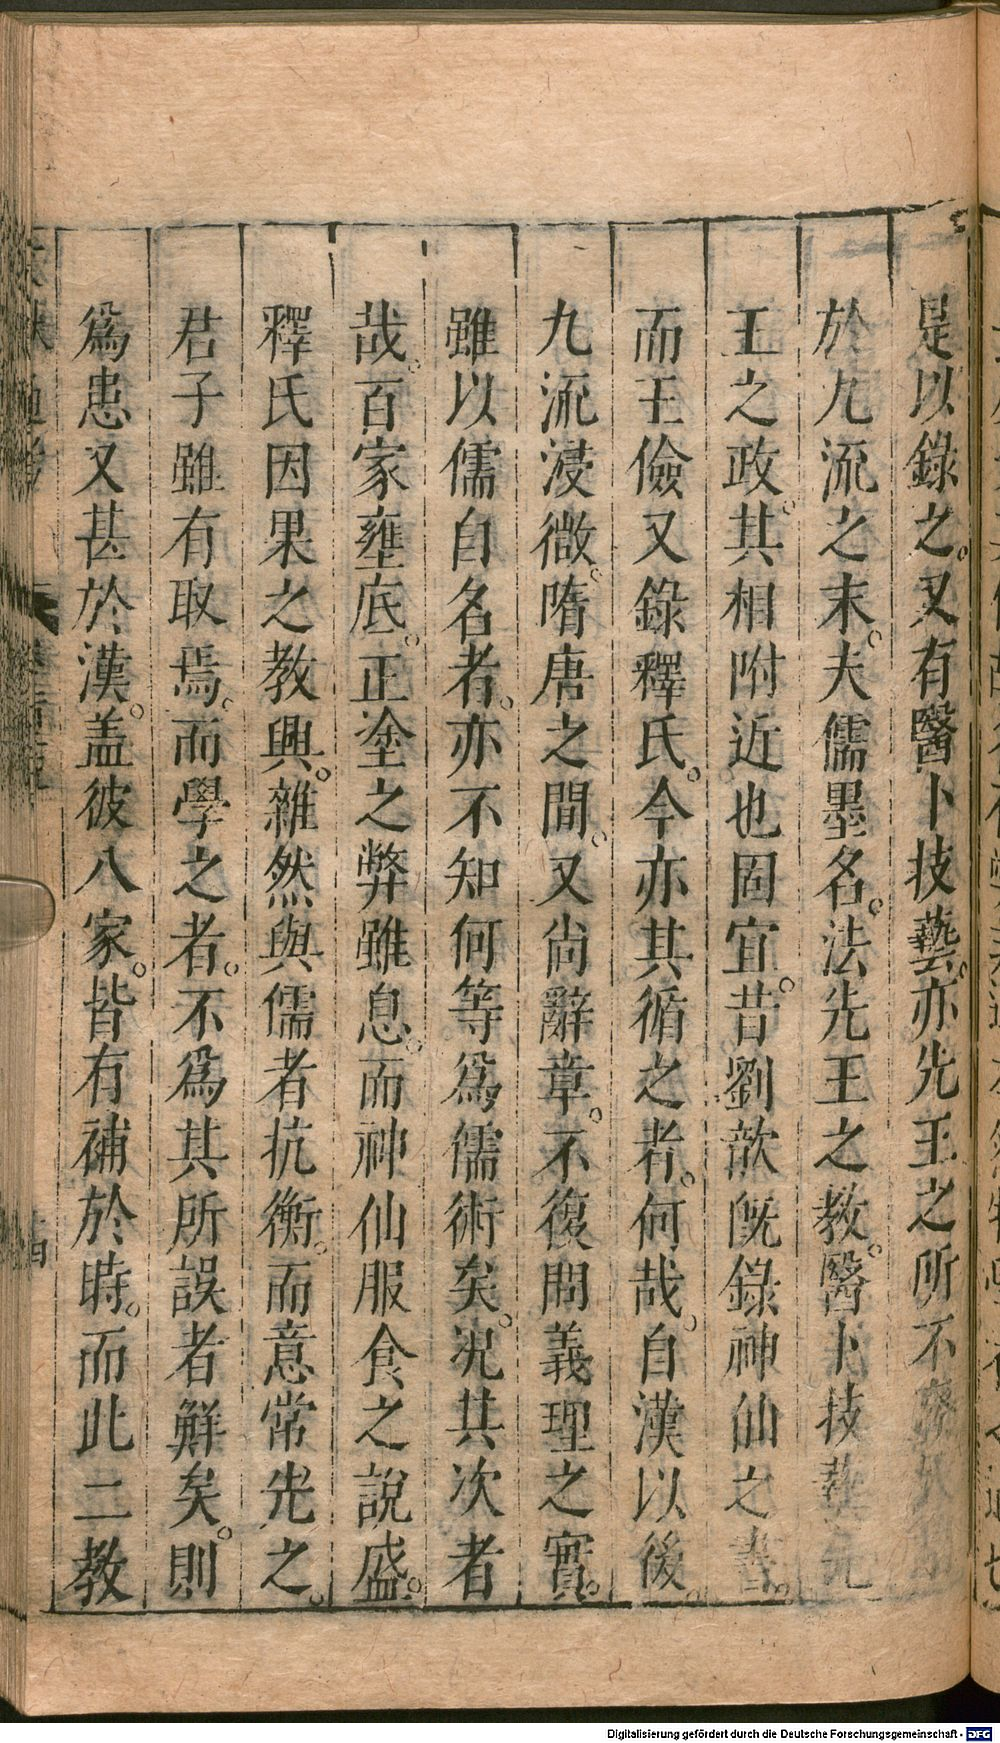 是以錄之。又有醫卜技藝。亦先王之所不
於九流之末。夫儒墨名。法先王之教。醫卜技藝先
王之政。其相附近也固宜。昔劉歆旣錄神仙之書。
而王儉又錄釋氏。今亦其循之者。何哉。自漢以後。
九流浸微。隋唐之間。又尙辭章。不復問義理之實。
雖以儒自名者。亦不知何等爲儒術矣。況其次者
哉。百家壅底。正塗之弊雖息。而神仙服食之說盛。
釋氏因果之教興。雜然與儒者抗衡。而意常先之。
君子雖有取焉。而學之者。不爲其所誤者鮮矣。則
爲患又甚於漢。盖彼八家。皆有補於時。而此二教
Digitalisierung gefördert durch die Deutsche Forschungsgemeinschaft - DFG